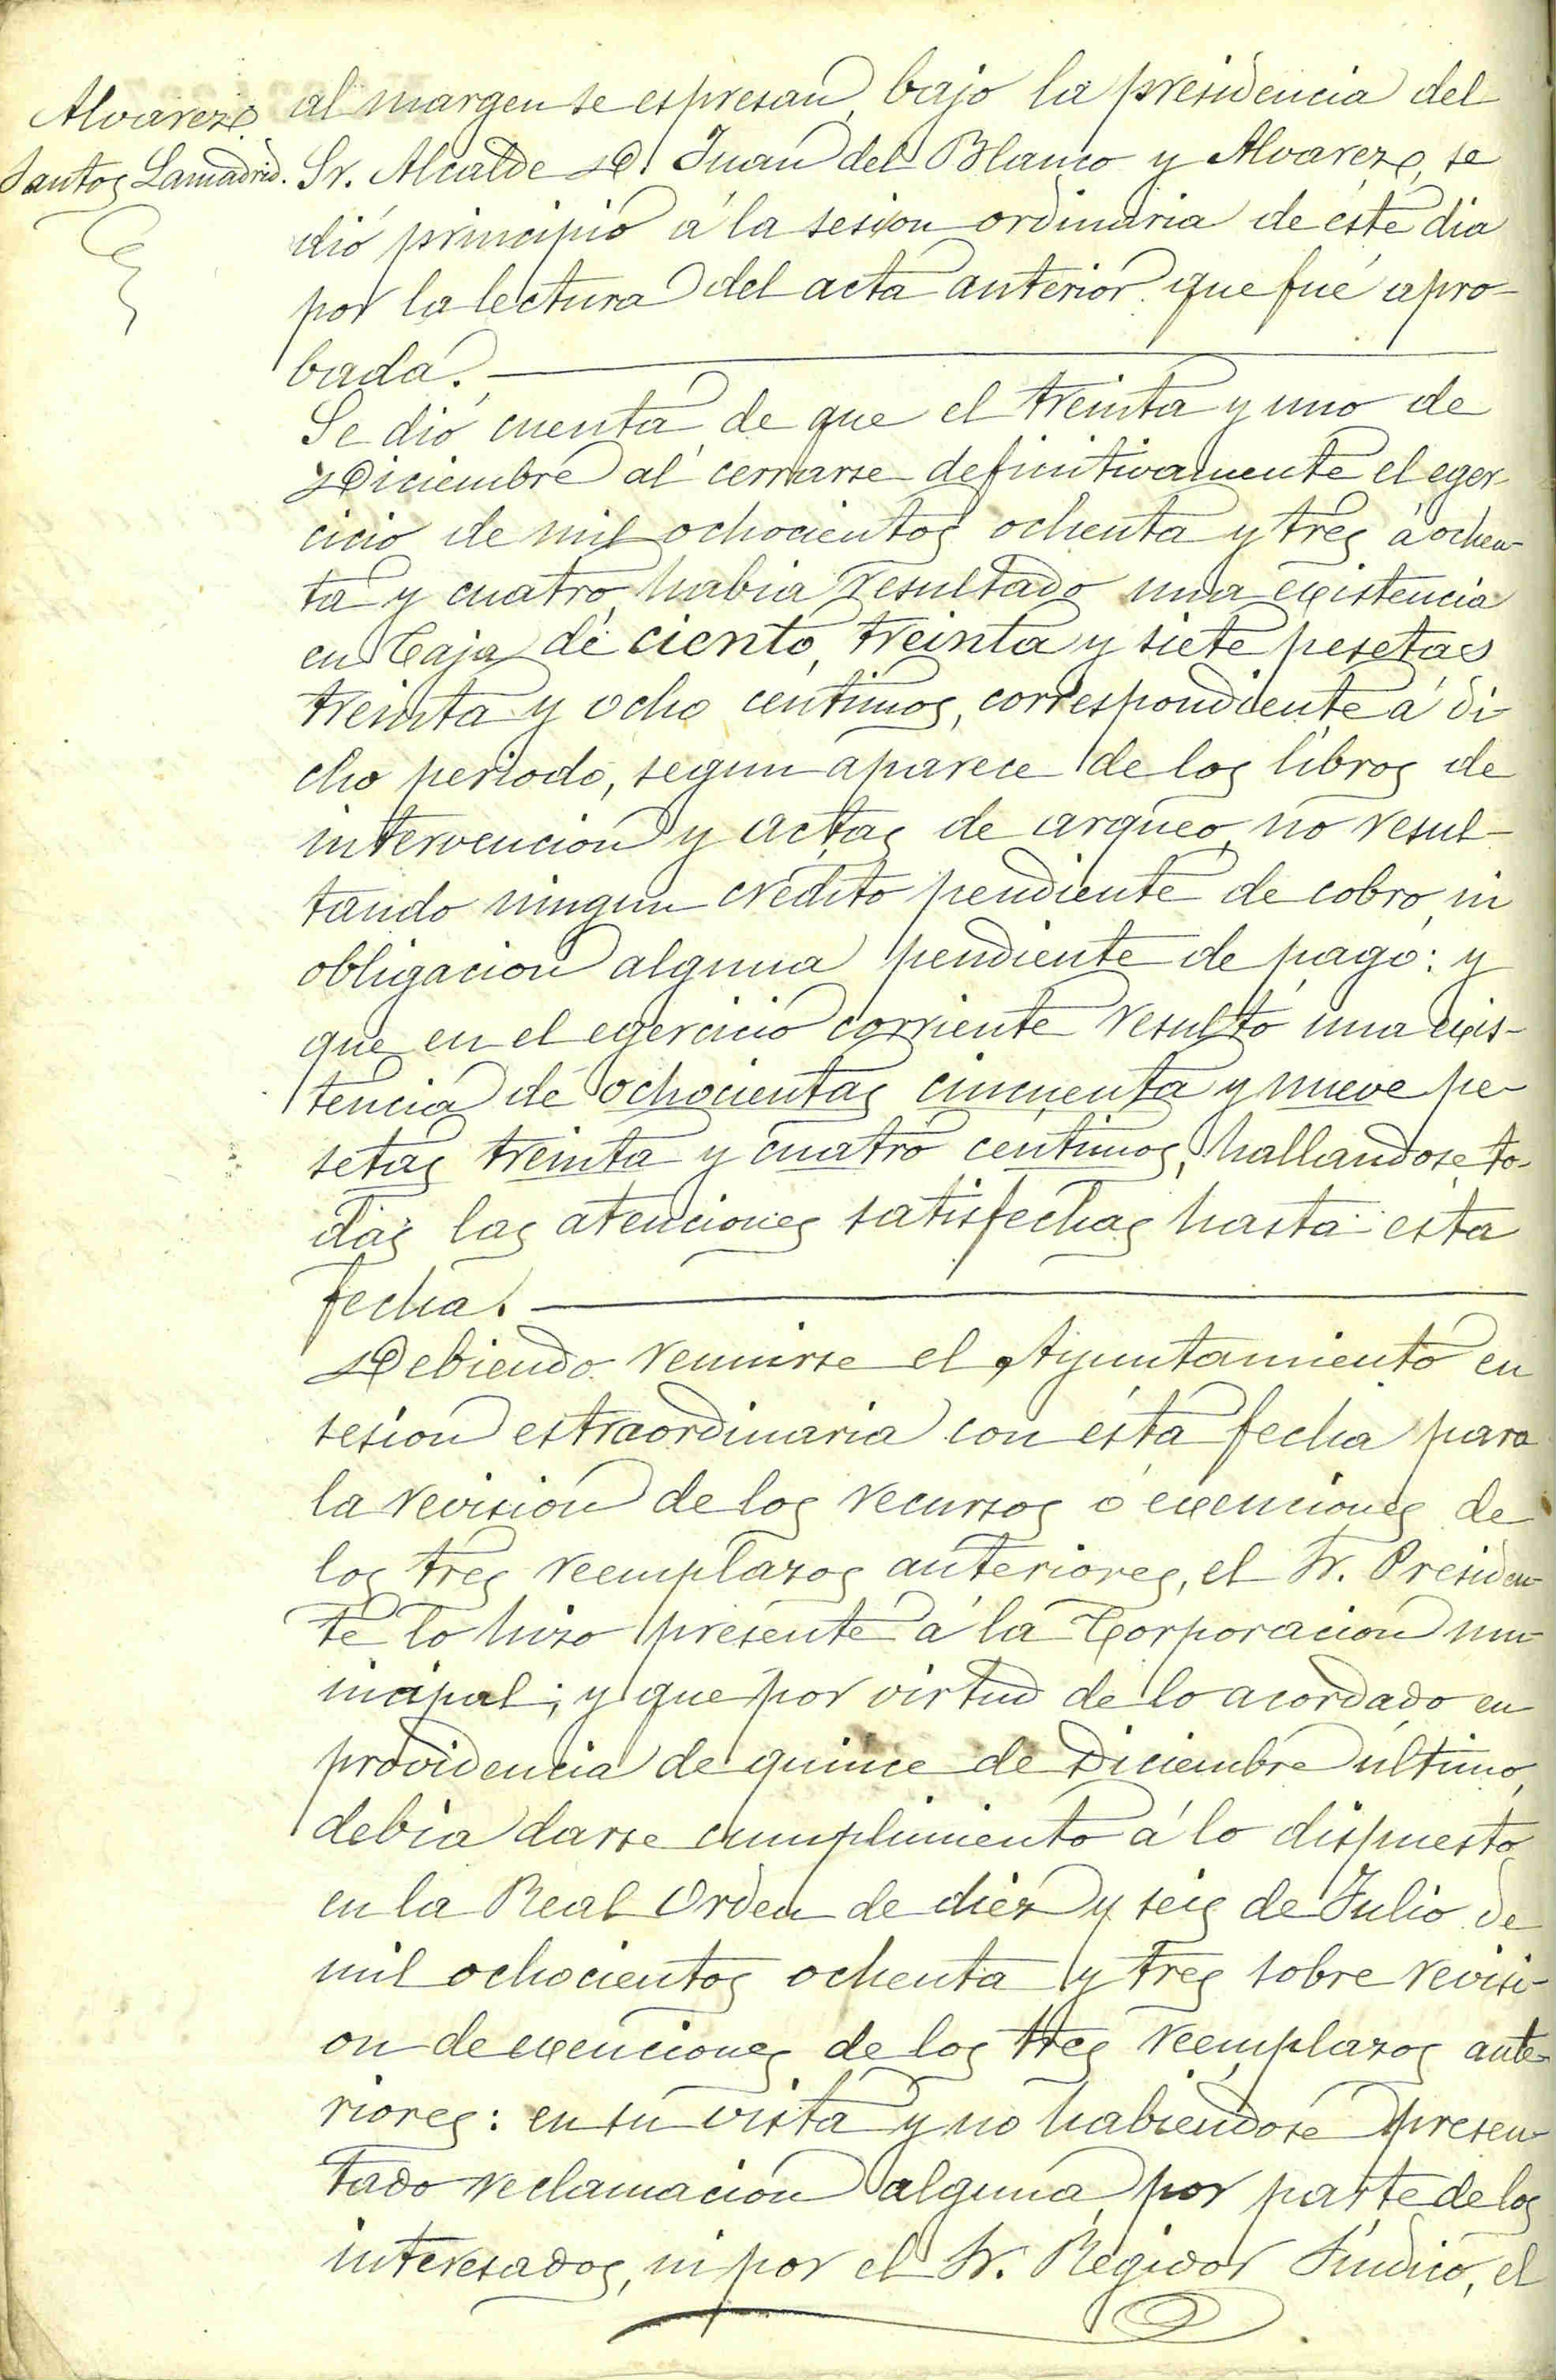 Alvarez.
Santos Lamadrid.
al margen se espresan, bajo la presidencia del
Sr. Alcalde D. Juan del Blanco y Alvarez, se
dió principio á la sesion ordinaria de éste dia
por la lectura del acta anterior que fué apro-
bada.
Se dió cuenta de que el treinta y uno de
Diciembre al cerrarse definitivamente el eger-
cicio de mil ochocientos ochenta y tres á ochen-
ta y cuatro, habia resultado una existencia
en Caja de ciento, treinta y siete pesetas
treinta y ocho centimos, correspondiente á di-
cho periodo, segun aparece de los libros de
intervencion y actas de arqueo, no resul-
tando ningun crédito pendiente de cobro, ni
obligacion alguna pendiente de pago: y
que en el egercicio corriente resultó una exis-
tencia de ochocientas cincuenta y nueve pe-
setas treinta y cuatro centimos, hallandose to-
das las atenciones satisfechas hasta esta
fecha.
Debiendo reunirse el Ayuntamiento en
sesion estraordinaria con ésta fecha para
la revision de los recursos ó exenciones de
los tres reemplazos anteriores, el Sr. Presiden-
te lo hizo presente á la Corporacion mu-
nicipal; y que por virtud de lo acordado en
providencia de quince de Diciembre último,
debia darse cumplimiento á lo dispuesto
en la Real Orden de diez y seis de Julio de
mil ochocientos ochenta y tres sobre revisi-
on de exenciones de los tres reemplazos ante-
riores: en su vista y no habiendose presen-
tado reclamacion alguna, por parte de los
interesados, ni por el Sr. Regidor Sindico, el